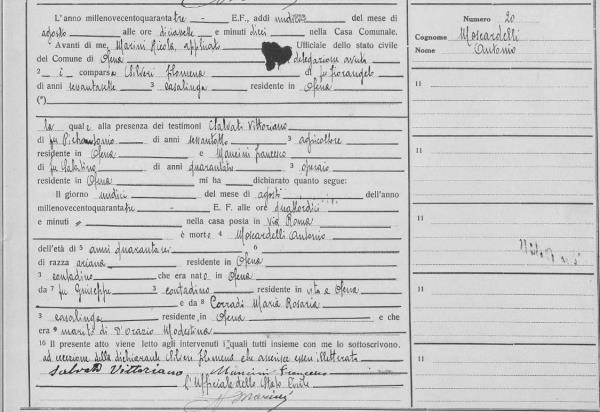 L'anno millenovecentoquarantatre - E.F., addì undici del mese di
agosto alle ore diciasette e minuti dieci nella Casa Comunale.
Avanti di me, Marini Nicola, applicato Ufficiale dello stato civile
del Comune di Ofena delegazione avuta
2 è comparsa Silveri Filomena di fu Fiorangelo
di anni settantasette 3 casalinga residente in Ofena
(*)
la quale alla presenza dei testimoni Salvati Vittoriano
di fu di anni sessantotto 3 agricoltore
residente in Ofena e Mancini Francesco
di fu Palatino di anni quarantatre 3 operaio
residente in Ofena mi ha dichiarato quanto segue:
Il giorno undici del mese di agosto dell'anno
millenovecentoquarantatre - E. F. alle ore quattordici
e minuti = nella casa posta in via Roma
è morto 4 Moscardelli Antonio
dell'età di 5 anni quarantasei 6
di razza ariana residente in Ofena
3 contadino che era nato in Ofena
da 7 fu Giuseppe 3 contadino residente in vita a Ofena
e da 8 Corradi Maria Rosaria
3 casalinga residente in Ofena e che
era 9 marito di D'Orazio Modestina
16 Il presente atto viene letto agli intervenuti i quali tutti insieme con me lo sottoscrivono,
ad eccezione della dichiarante Silveri Filomena che asserisce essere illetterata
Salvati Vittoriano Mancini Francesco
L'Ufficiale dello Stato Civile
Marini
Numero 20
Cognome Moscardelli
Nome Antonio
11
11
11
11
11